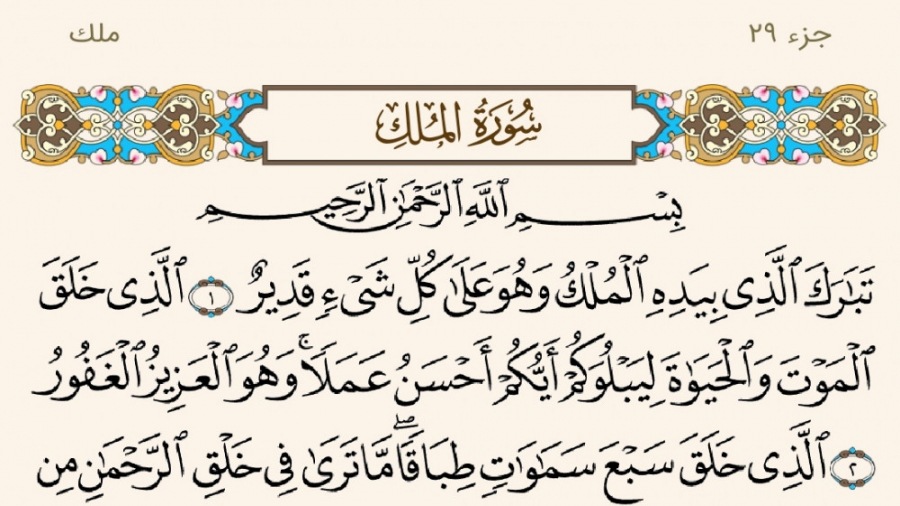 جزء ٢٩
ملك
سُورَةُ المُلْكِ
بِسْمِ ٱللَّهِ ٱلرَّحْمَٰنِ ٱلرَّحِيمِ
تَبَٰرَكَ ٱلَّذِى بِيَدِهِ ٱلْمُلْكُ وَهُوَ عَلَىٰ كُلِّ شَىْءٍ قَدِيرٌ ١ ٱلَّذِى خَلَقَ
ٱلْمَوْتَ وَٱلْحَيَوٰةَ لِيَبْلُوَكُمْ أَيُّكُمْ أَحْسَنُ عَمَلًا ۚ وَهُوَ ٱلْعَزِيزُ ٱلْغَفُورُ
٢ ٱلَّذِى خَلَقَ سَبْعَ سَمَٰوَٰتٍ طِبَاقًا ۖ مَّا تَرَىٰ فِى خَلْقِ ٱلرَّحْمَٰنِ مِن